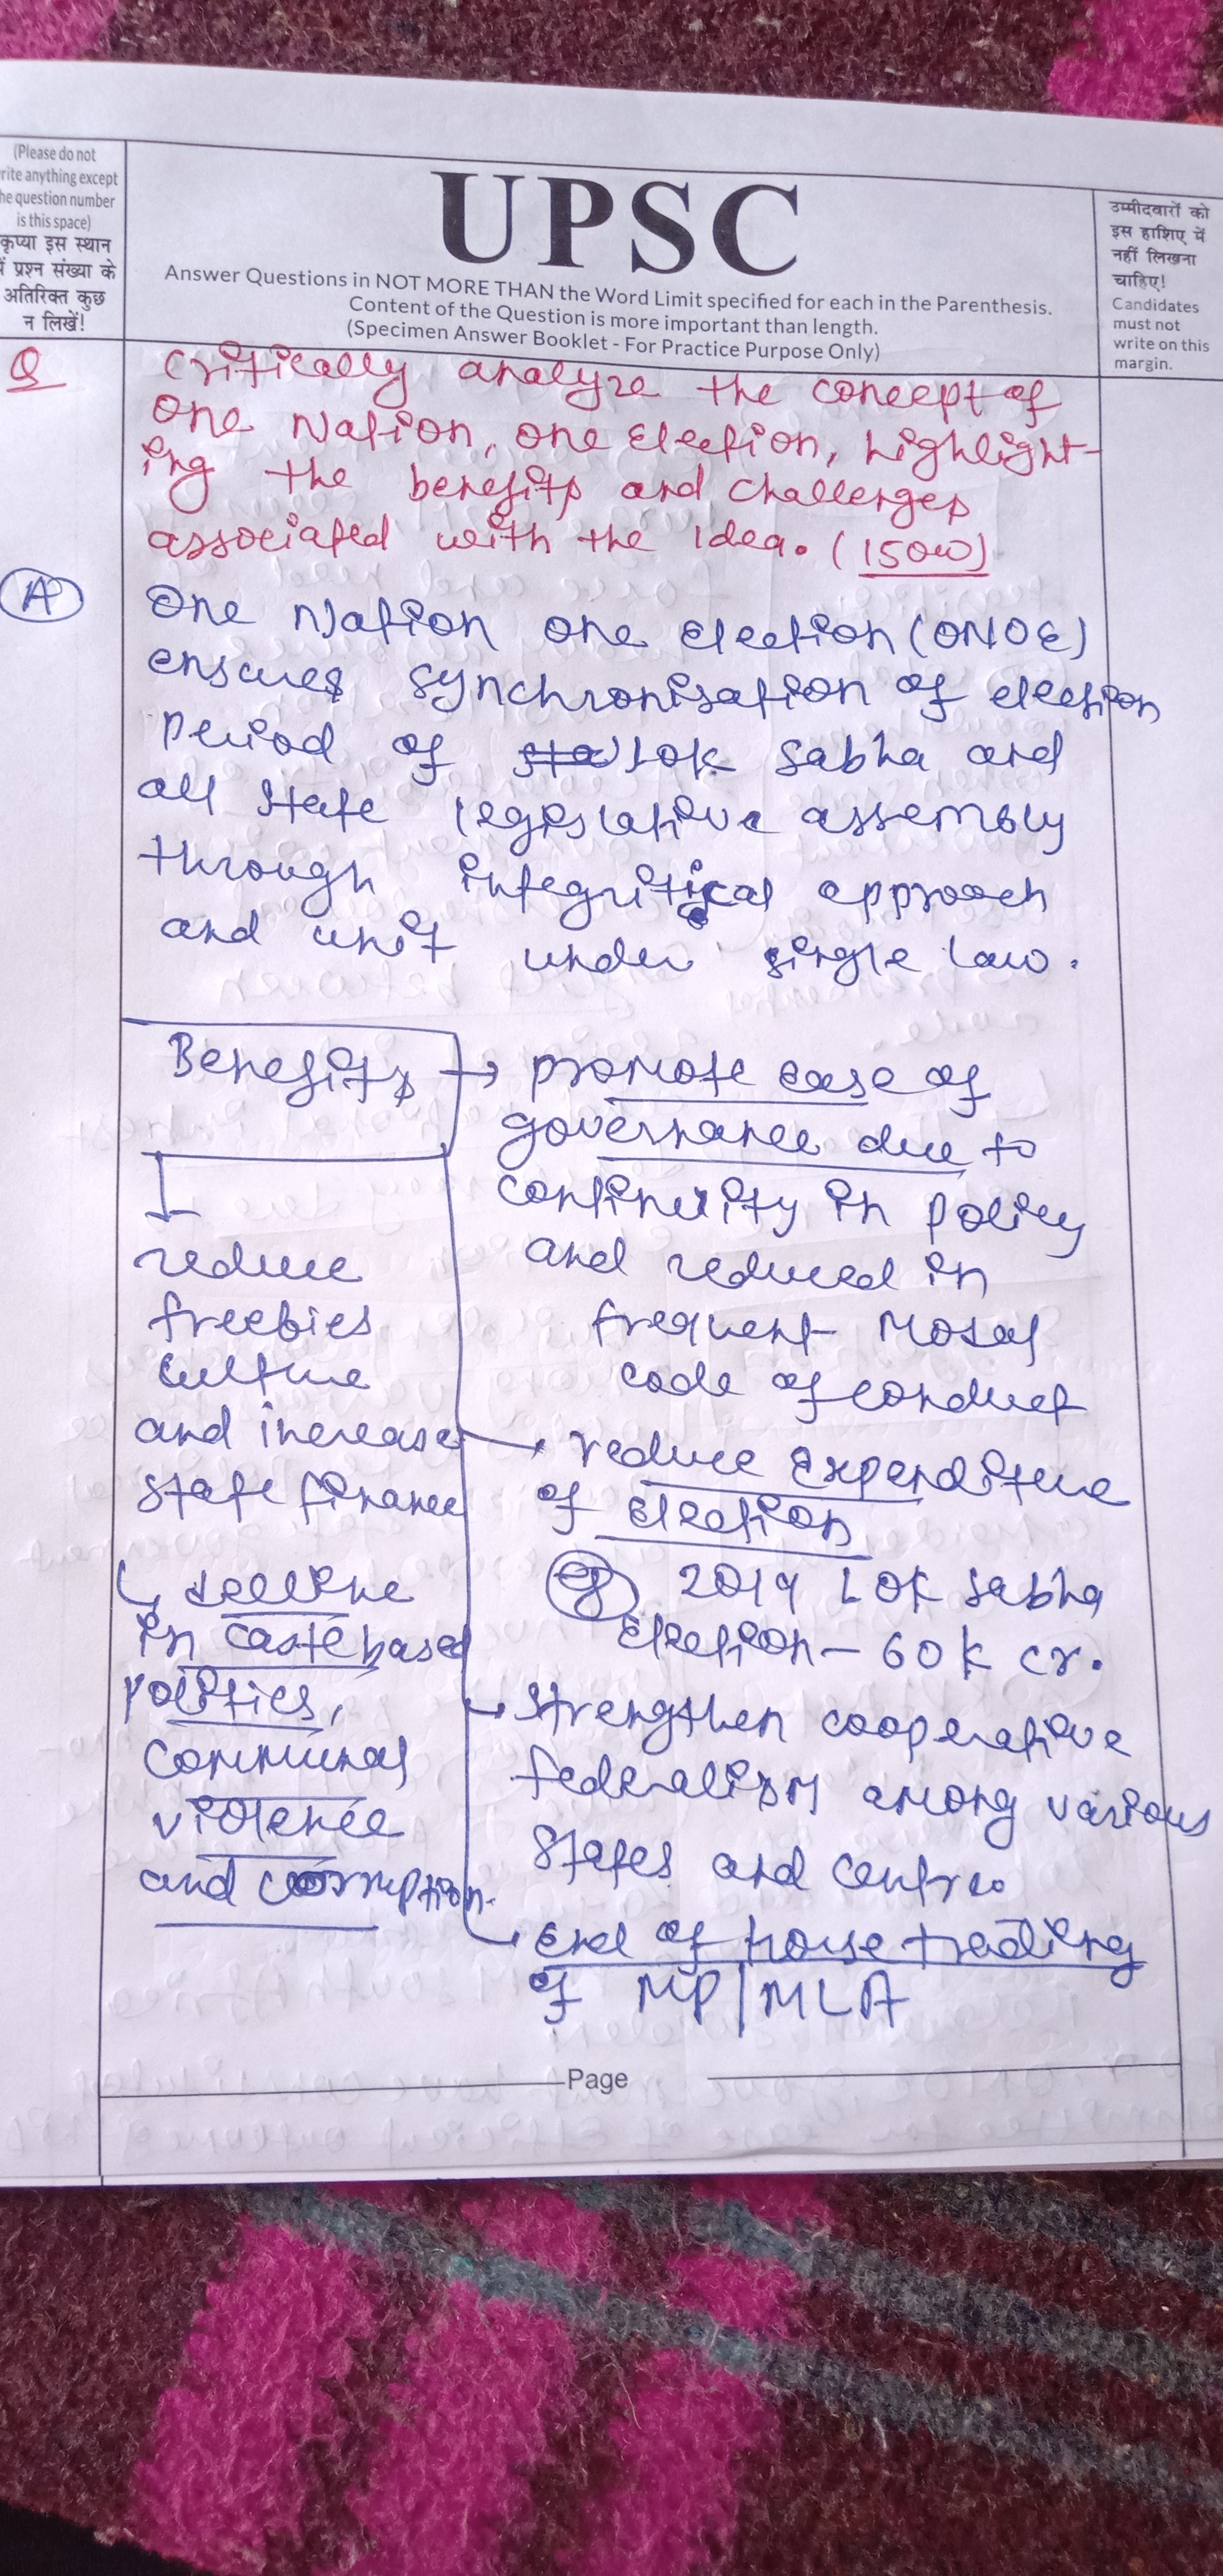 (Please do not
rite anything except
he question number
is this space)
कृप्या इस स्थान
में प्रश्न संख्या के
अतिरिक्त कुछ
न लिखें!
UPSC
Answer Questions in NOT MORE THAN the Word Limit specified for each in the Parenthesis.
Content of the Question is more important than length.
(Specimen Answer Booklet - For Practice Purpose Only)
उम्मीदवारों को
इस हाशिए में
नहीं लिखना
चाहिए!
Candidates
must not
write on this
margin.
Q
Critically analyze the concept of
One Nation, one Election, highlight-
ing the benefits and challenges
associated with the Idea. (150w)
A
One Nation One Election (ONOE)
ensures synchronisation of election
Period of Lok Sabha and
all State legislative assembly
through integritical approach
and unit under single law.
Benefits
→ promote ease of
governance due to
continuity in policy
and reduced in
frequent Moral
code of conduct
→ reduce Expenditure
of Election
eg 2019 LOK Sabha
Election - 60K cr.
→ strengthen cooperative
federalism among various
States and Centre.
→ End of horse trading
of MP/MLA
reduce
freebies
culture
and increase
state finance
→ decline
in caste based
politics,
communal
violence
and corruption.
Page